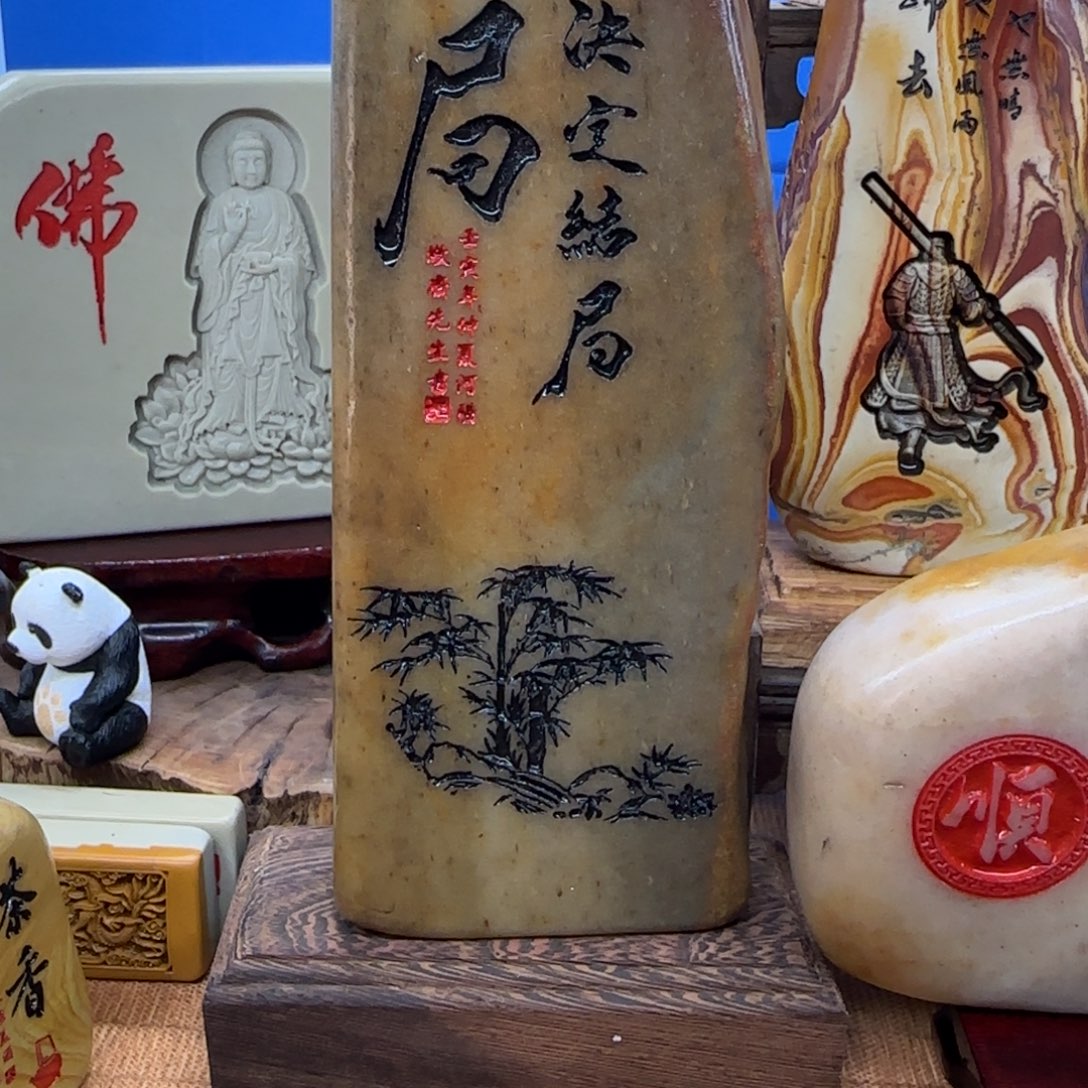 佛
决定結局
局
壬寅年仲夏河
先生書
去
也無風雨
也無晴
順
茶香